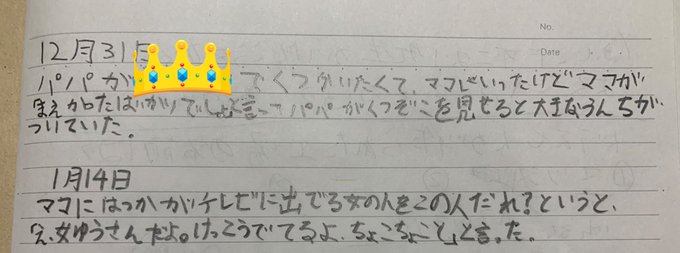 No.
Date
12月31日
パパが でくつがいたくて、ママにいったけどママが
まえかったばかりでしょと言ってパパがくつぞこを見せると大きなうんちが
ついていた。
1月14日
ママに がテレビに出てる女の人をこの人だれ?というと、
「え、女ゆうさんだよ。けっこうでてるよ、ちょこちょこと」と言った。